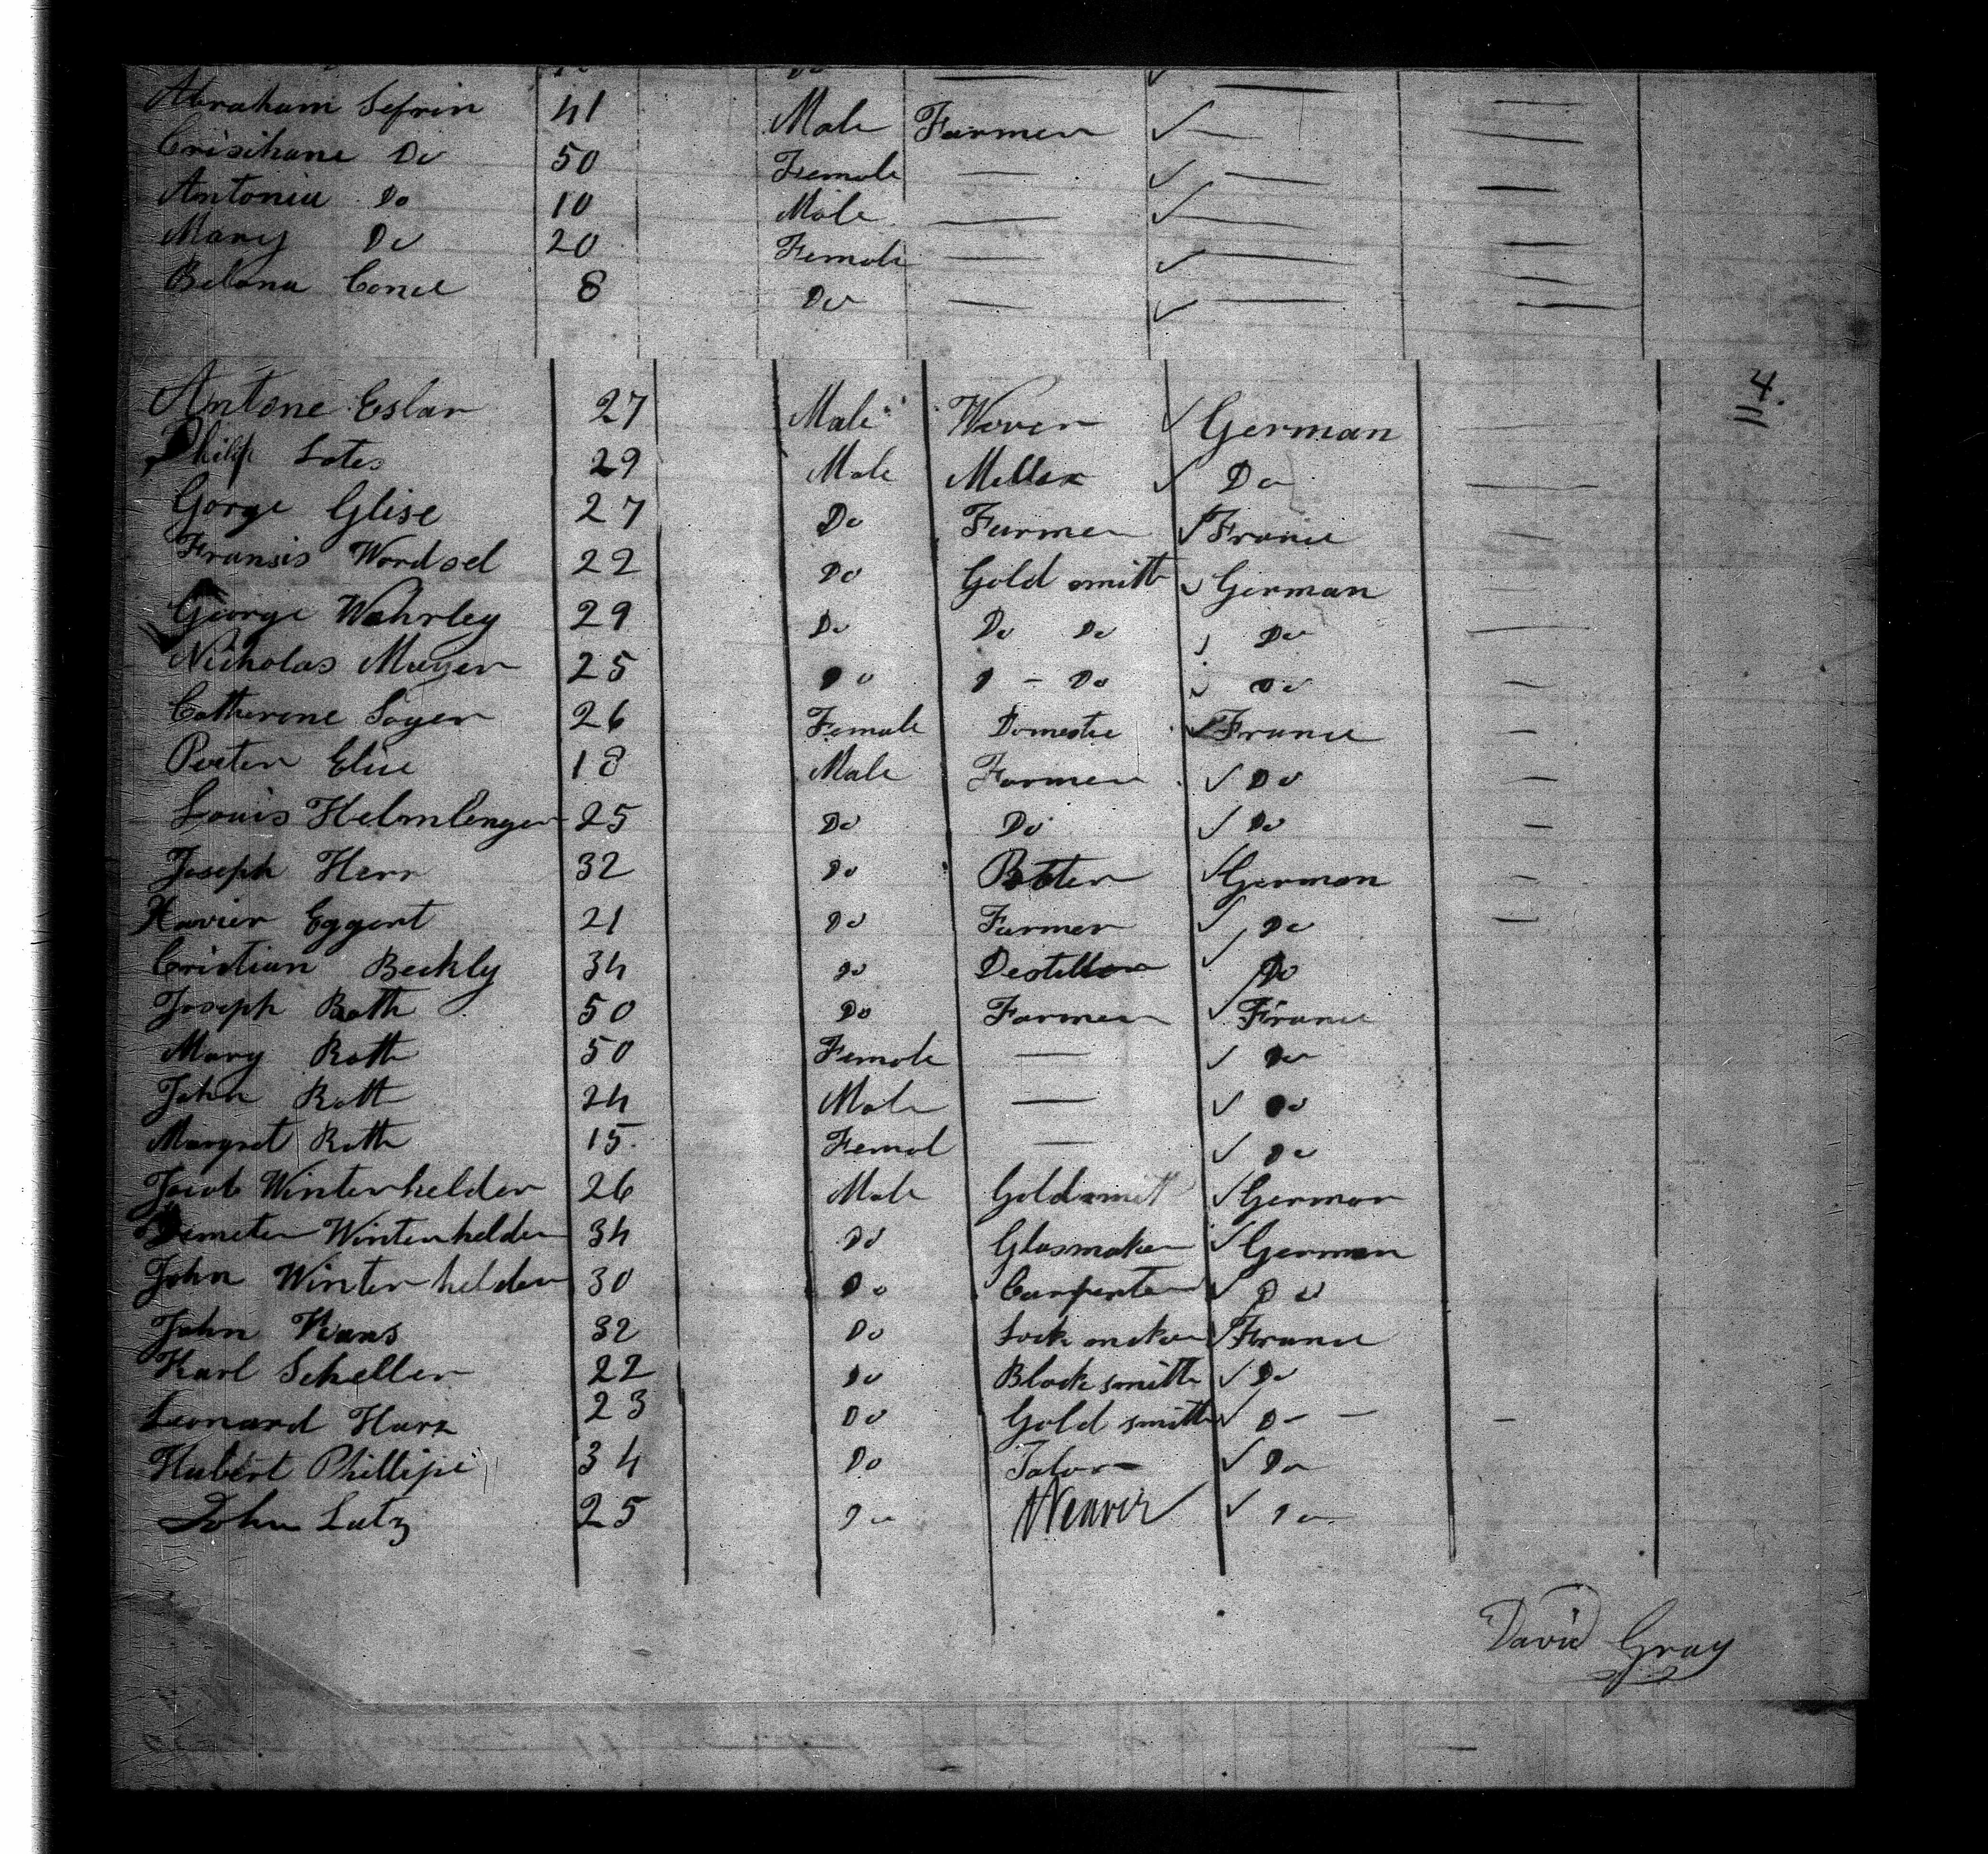 Abraham Sefrin 41 Male Farmer
Crisihane Do 50 Female
Antoniu Do 10 Male
Mary Do 20 Female
Belona Conel 8 Do
4.
Antone Eslar 27 Male Wever German
Philip Lotes 29 Male Meller Do
Gorge Glise 27 Do Farmer France
Fransis Wordsel 22 Do Gold smith German
George Wohrley 29 Do Do Do Do
Nicholas Muyer 25 Do D - Do Do
Catherine Soyer 26 Female Domestic France
Peeter Elice 18 Male Farmer Do
Louis Helmlenger 25 Do Do Do
Joseph Herr 32 Do German
Xavier Eggert 21 Do Farmer Do
Cristian Beckly 34 Do Destiller Do
Joseph Roth 50 Do Farmer France
Mary Roth 50 Female Do
John Roth 24 Male Do
Margret Roth 15 Femal Do
Jacob Winterhelder 26 Male Goldsmitt German
Demeter Winterhelder 34 Do Glasmaker German
John Winterhelder 30 Do Carpenter Do
John 32 Do Lock maker France
Karl Scheller 22 Do Black smith Do
Leonard Harz 23 Do Gold smith D
Hubert Phillipe 34 Do Talor Do
John Lutz 25 Do Weaver Do
David Gray